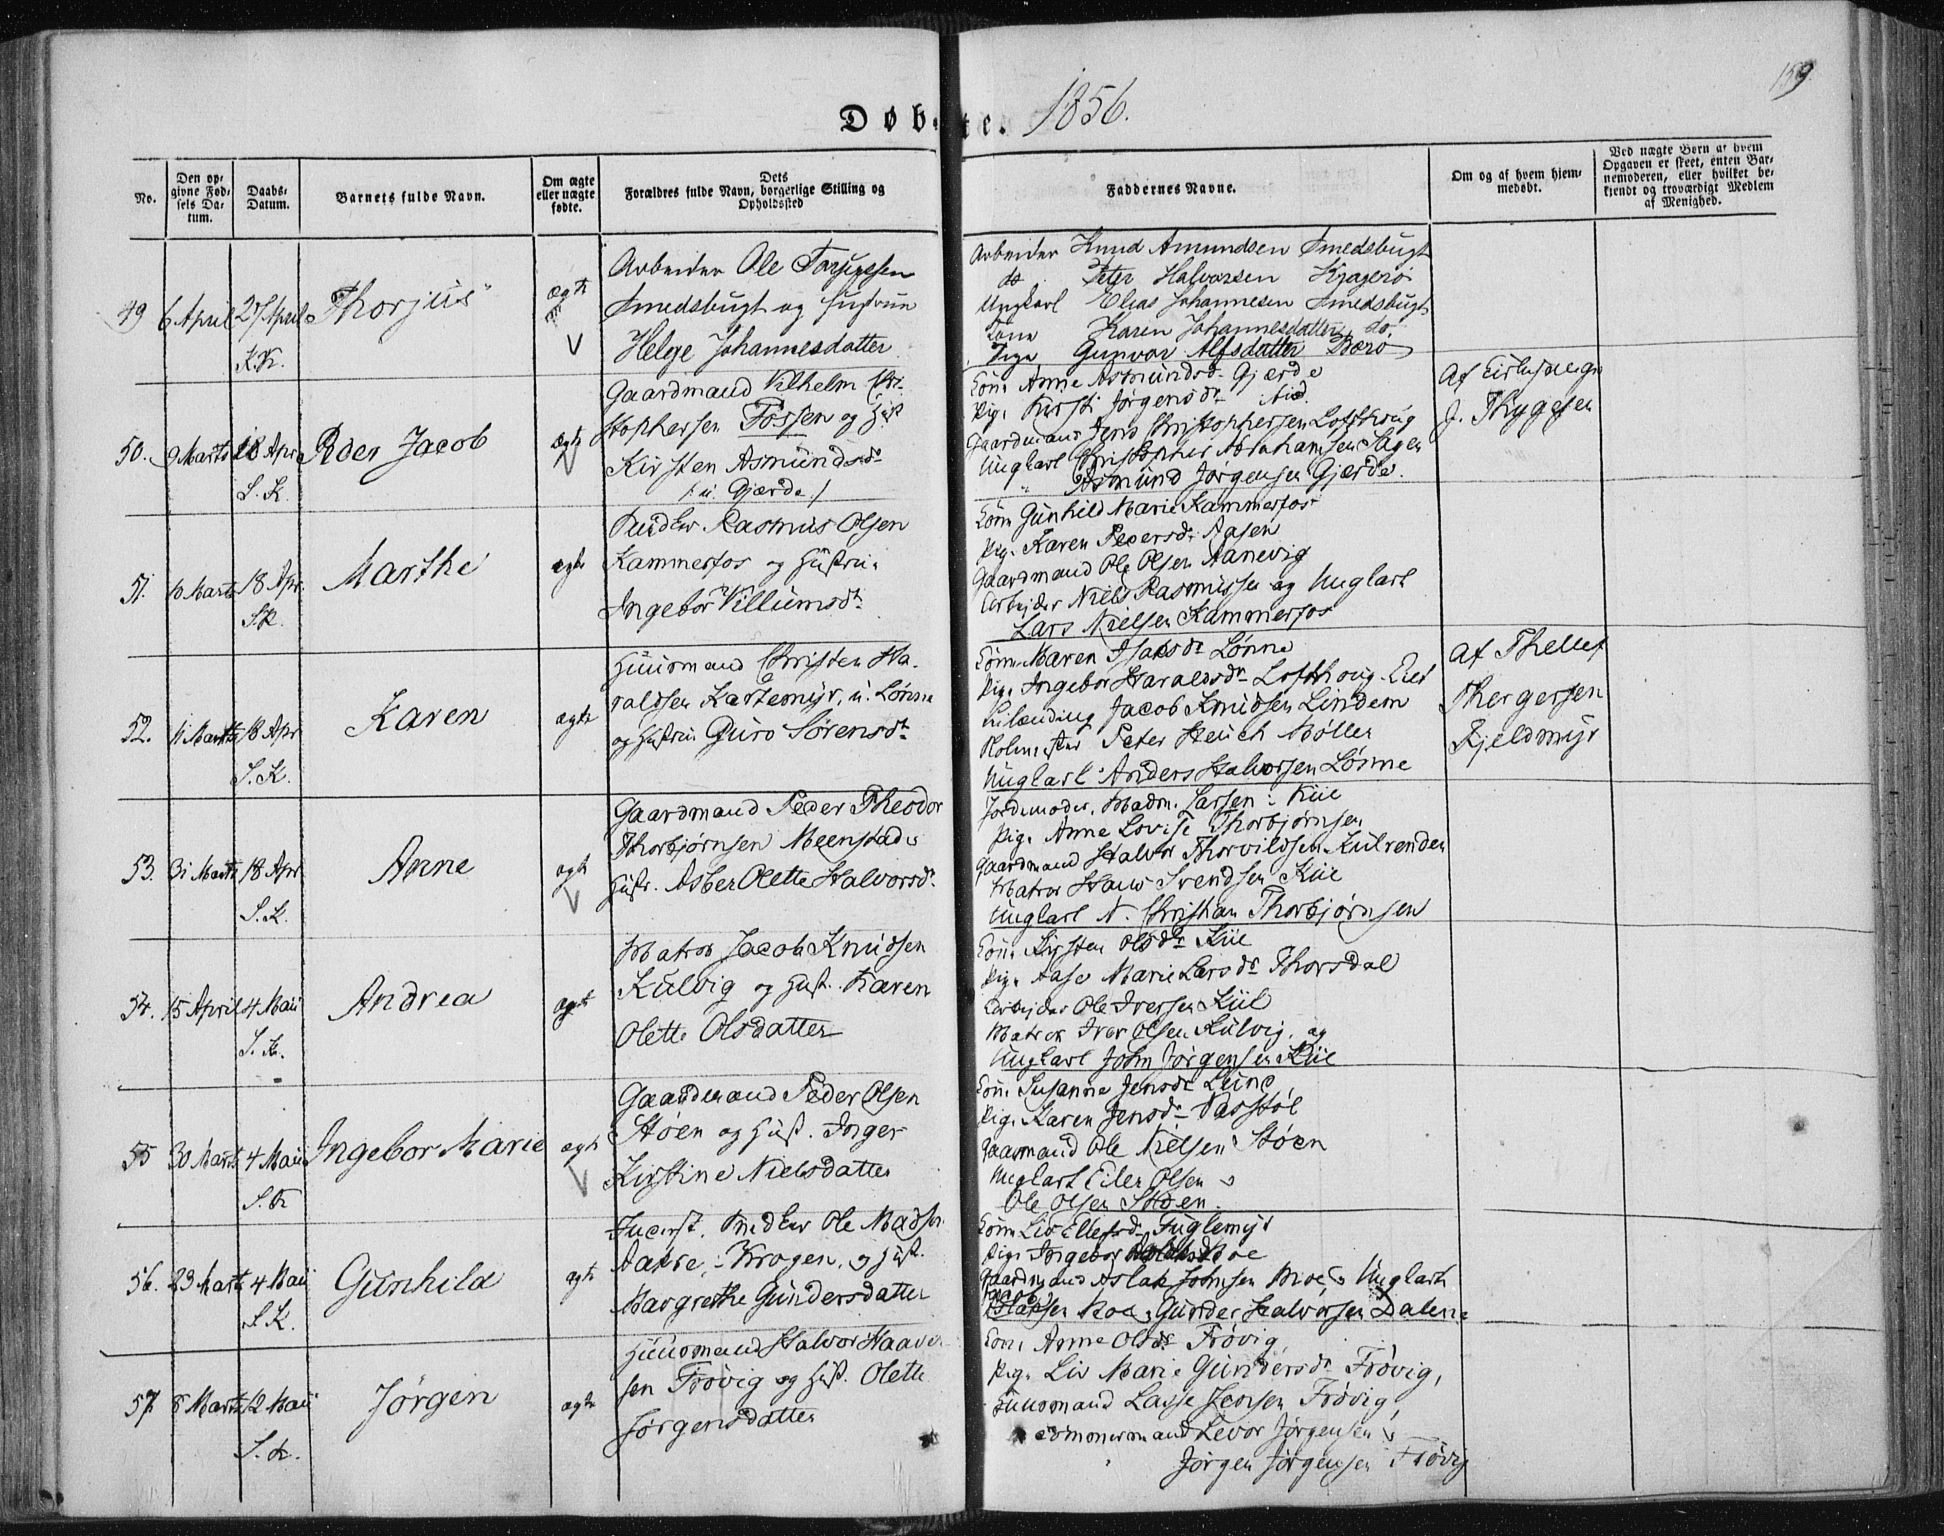 159
Døbte. 1856.
No.
Den opgivne Fødsels Datum.
Daabs-Datum.
Barnets fulde Navn.
Om ægte eller uægte fødte.
Dets Forældres fulde Navn, borgerlige Stilling og Opholdssted
Faddernes Navne.
Om og af hvem hjemmedøbt.
Ved uægte Børn af hvem Opgaven er skeet, enten Barnemoderen, eller hvilket bekjendt og troværdigt Medlem af Menighed.
49 6 April 27 April Thorjus ægte
K.K.
Arbeider Ole
Smedsbugt og Hustrue
Helge Johannesdatter
Arbeider Knud Amundsen Smedsbugt
do. Peter Halvorsen Kragerö
Ungkarl Elias Johannesen Smedsbugt
Kone Karen Johannesdatter do.
Pige Gunvor Alfsdatter Berø
50. 9 Marts 18 Apr Peder Jacob ægte
S.K.
Gaardmand Vilhelm Chri-
stophersen Fossen og Hust
Kirsten Asmundsdr
/: u. Gjærde /
Kone Anne Asmundsdr Gjærde
Pige Kirsti Jørgensdr ibid.
Gaardmand Jens Christophersen Lofthoug
Ungkarl Christopher Abrahamsen
" Asmund Jørgensen Gjærde.
Af
J. Thygesen
51. 10 Marts 18 Apr. Marthe ægte
S.K.
Rasmus Olsen
Kammerfos og Hustru
Ingebor Villumsdr
Kone Gunhild Marie Kammerfos
Pige Karen Pedersdr Aasen
Gaardmand Ole Olsen Aanevig
Arbejder Niels Rasmussen og Ungkarl
Lars Nielsen Kammerfos
52. 11 Marts 18 Apr Karen ægte
S.K.
Huusmand Christen Ha-
raldsen Kartemyr, u. Lønne
og Hustru Guro Sørensdr
Kone Maren Isaksdr Lønne
Pige Ingebor Haraldsdr Lofthoug Eiet
Jacob Knudsen Lindem
Peter Henich Møller
Ungkarl Anders Halvorsen Lønne
Af Thellef
Thergersen
Kjeldmyr
53. 31 Marts 18 Apr Anne ægte
S.K.
Gaardmand Peder Theodor
Thorbjørnsen Meenstad
Hustr. Asber Olette Halvorsdr
Jordemoder, Madm. Larsen i Kiil
Pige Anne Lovise Thorbjørnsen
Gaardmand Halvor Thorvildsen Kulrenden
Matros Hans Svendsen Kiil
Ungkarl N. Christian Thorbjørnsen
54. 15 April 4 Maii Andrea ægte
S.K.
Matros Jacob Knudsen
Kulvig og Hust. Karen
Olette Olsdatter
Kone Kirsten Olsdr Kiil
Pige Aase Marie Larsdr Thorsdal
Arbejder Ole Iversen Kiil
Matros Iver Olsen Kulvig, og
Ungkarl John Jørgensen Kiil
55 30 Marts 4 Maii Ingebor Marie ægte
S.K
Gaardmand Peder Olsen
Støen og Hust. Inger
Kirstine Nielsdatter
Kone Susanne Jensdr
Pige Karen Jensdr Vasstøl
Gaarmand Ole Nielsen Støen
Ungkarl Eiler Olsen
Ole Olsen Støen
56. 23 Marts 4 Maii Gunhild ægte
S.K.
Ole Madsen
Aakre, i Krogen, og Hust.
Margrethe Gundersdatter
Kone Liv Ellefsdr Fuglemyr
Pige Ingebor Moe
Gaardmand Aslak Johnsen Moe Ungkarl
Aslaksen Moe Gunder Halvorsen Dalene
57 8 Marts 12 Maii Jörgen ægte
S.K.
Huusmand Halvor Haavor-
sen Frövig og Hust. Olette
Jørgensdatter
Kone Anne Olsdr Frövig,
Pige Liv Marie Gundersdr Frövig,
Huusmand Lasse Jensen Frövig,
Tømmermand Levor Jörgensen
Jörgen Jörgensen Frövig